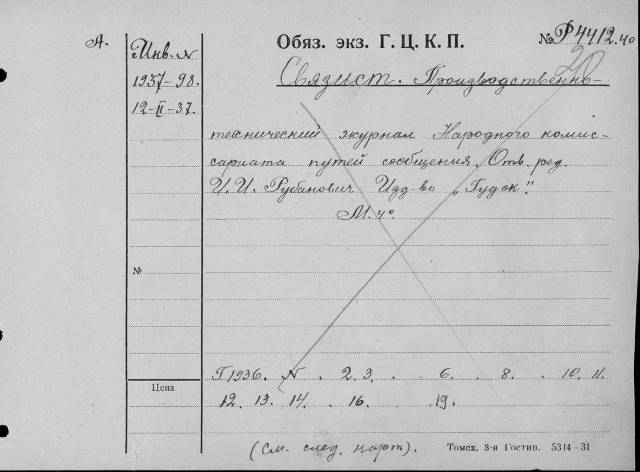 А.
Инв. N
1937-98.
12-II-37.
Обяз. экз. Г. Ц. К. П.
№ Р4412.40
20
Связист. Производственно-
технический журнал Народного комис-
сариата путей сообщения. Отв. ред.
И. И. Рубанович Изд-во „Гудок".
М. 4°
№
Цена
Г 1936. N . 2. 3. . 6. . 8. . 10. 11.
12. 13. 14. . 16. . 19.
(См. след. карт).
Томск. 3-я Гостип. 5314-31